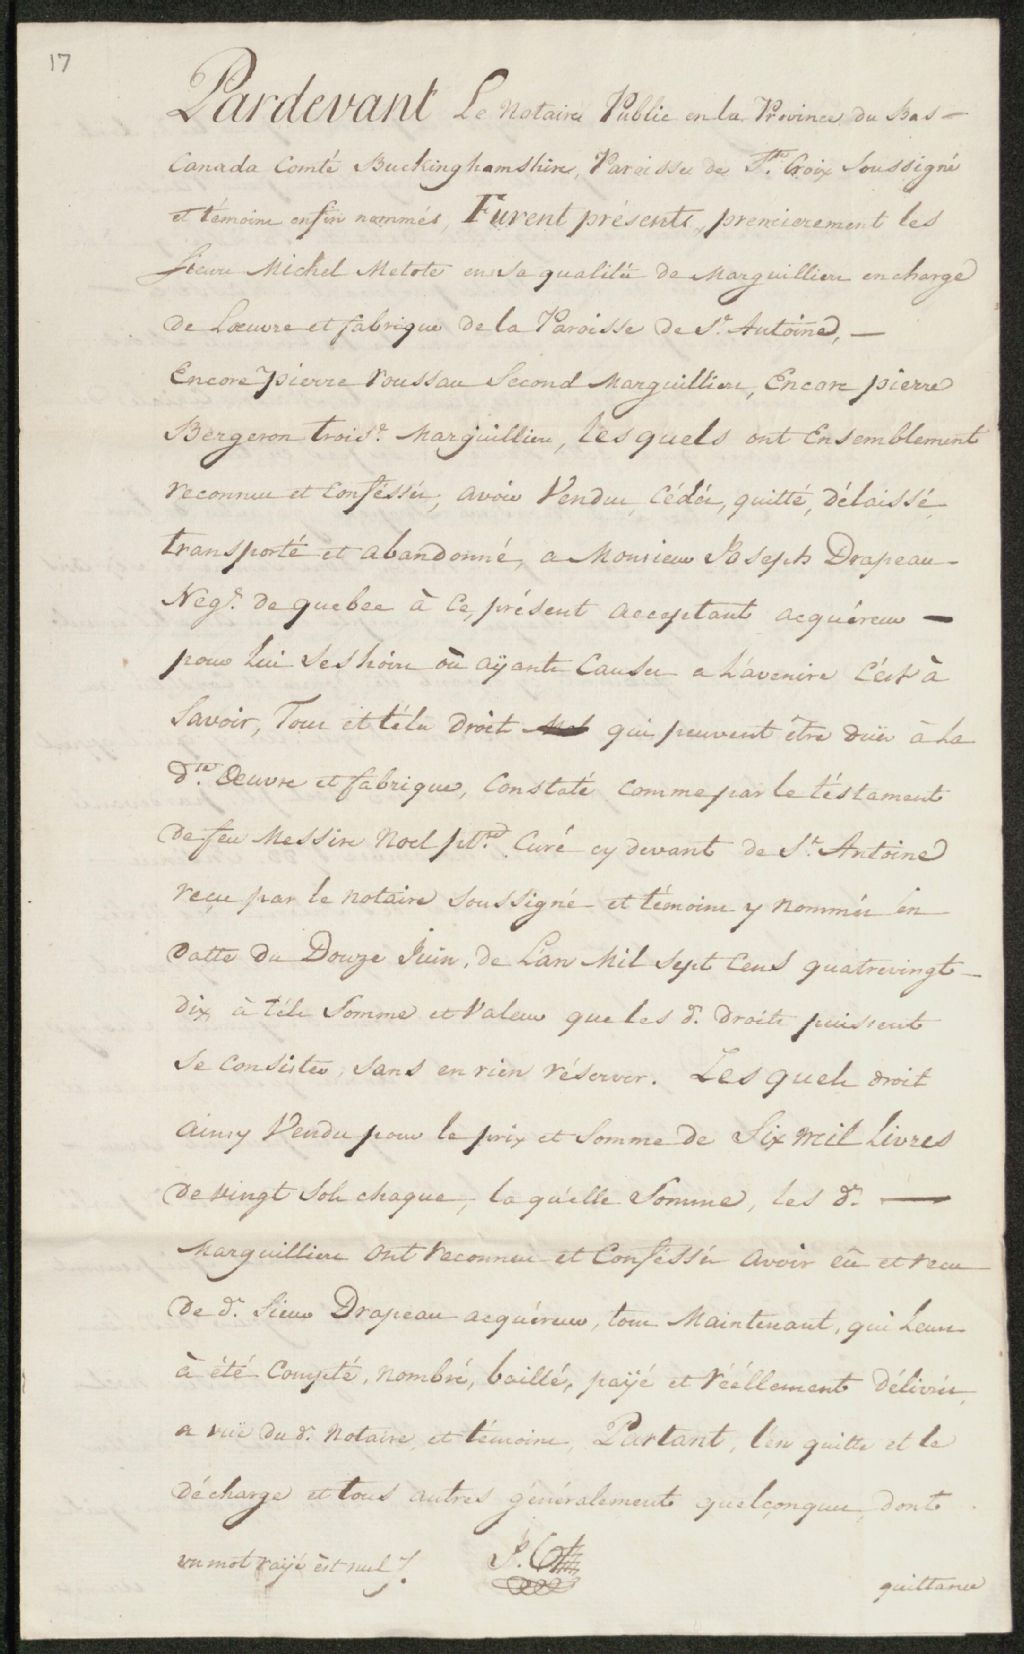 17
Pardevant Le Notaire Public en la Province du Bas –
Canada Comté Buckinghamshire, Paroisse de Ste. Croix Soussigné
et témoins enfin nommés, Furent présents, premierement les
Sieurs Michel Metote en sa qualité de Marguilliers en charge
de Loeuvre et fabrique de la Paroisse de St. Antoine, –
Encore pierre roussau Second Marguilliers, Encore pierre
Bergeron troise. Marguilliers, lesquels ont Ensemblement
reconnus et Conféssés, avoir Vendus, Cédés, quitté, délaissé
transporté et abandonné, a Monsieur Joseph Drapeau –
Negt. de quebec à ce, présent acceptant acquéreur –
pour Lui Ses hoirs où aÿants Causes a L'avenire C'ést à
Savoir, Tous et téls droit qui peuvent être düs à La
dte. Oeuvre et fabrique, Constaté comme par le téstament
de feu Messire Noel ptre. Curé cy devant de St. Antoine
reçu par le notaire soussigné et témoins y nommés en
datte du Douze Juin, de L'an Mil Sept Cens quatrevingt –
dix, à téls Somme et Valeur que les d. droits puissent
se consister, sans en rien réserver. Lesquels droit
ainsy Vendu pour le prix et Somme de Six mil Livres
de vingt Sols chaque, la qu'elle Somme, les d. –
Marguilliers ont reconnus et Conféssés avoir eû et recu
de d. Sieur Drapeau acquéreur, tous Maintenant, qui Leurs
à été Compté, nombré, baillé, paÿé et réellement délivrés
a vüe du d. Notaire et témoins, Partant, l'en quitte et le
décharge et tous autres généralements quelçonques, dont
un mot raÿé ést nul J.
quittance